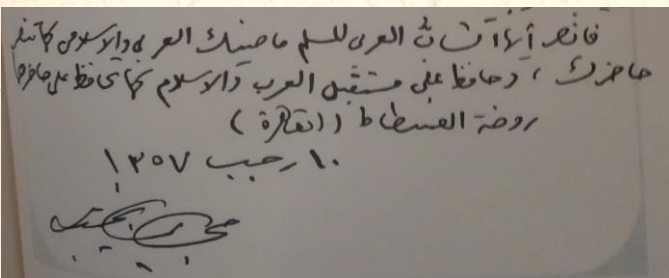 فانصر أيها الشاب العربي المسلم ماضيك العربي والاسلامي كما تنصر
حاضرك ، وحافظ على مستقبل العرب والاسلام كما تحافظ على حاضرهما
روضة الفسطاط ( القاهرة )
١٠ رجب ١٣٥٧
محب الدين الخطيب